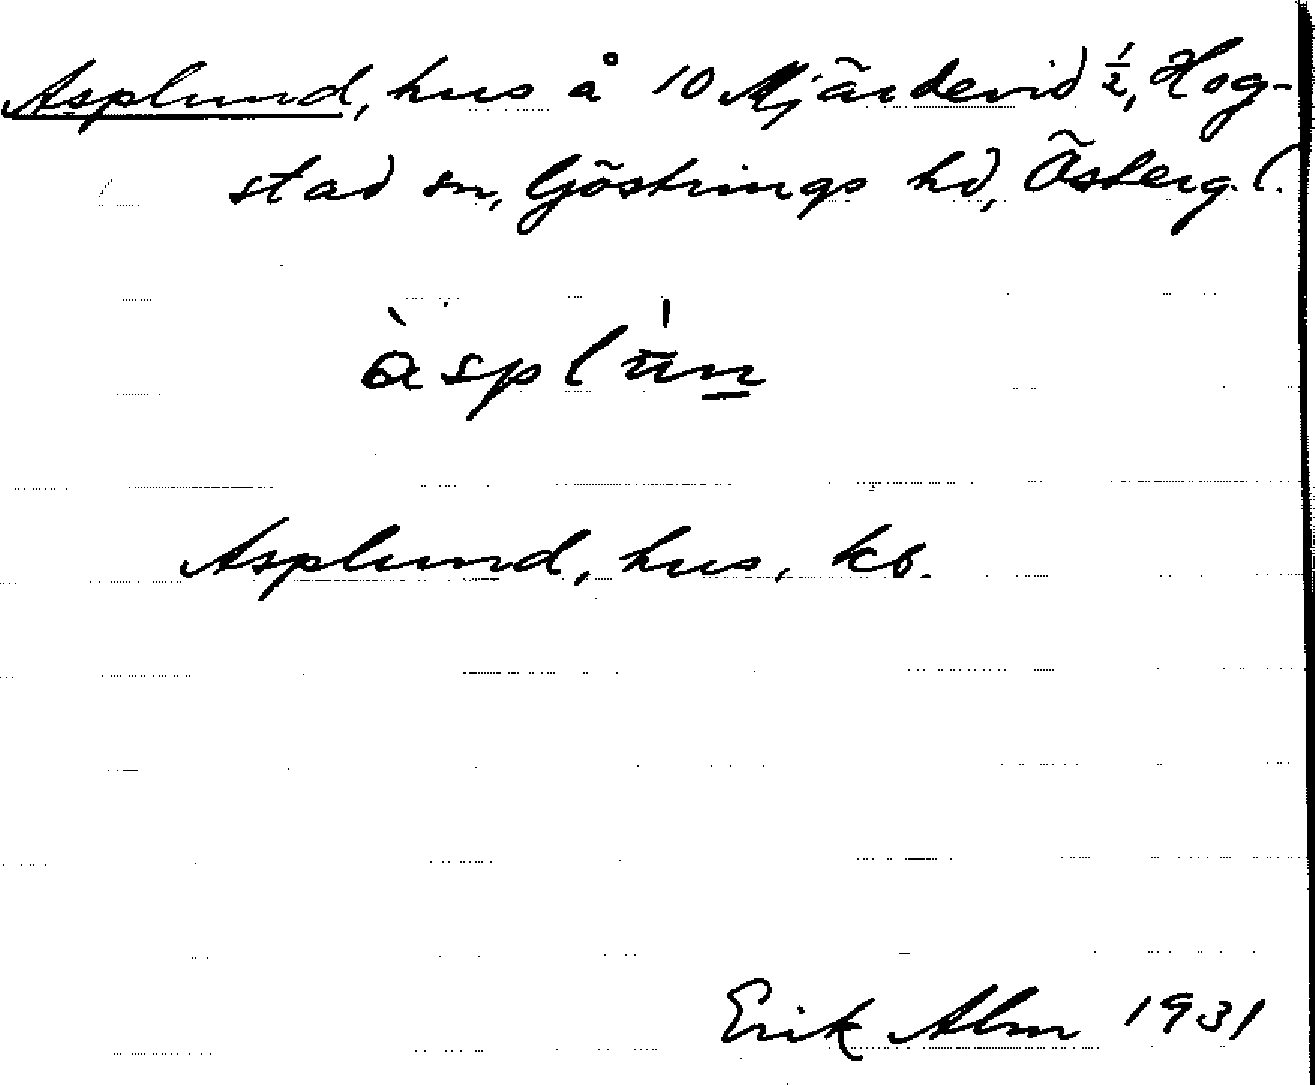 Asplund, hus å 10 Mjärdevid ½, Hog-
stad sn, Göstrings hd, Österg. l.
àsplún
Asplund, hus, kb.
Erik Alm 1931